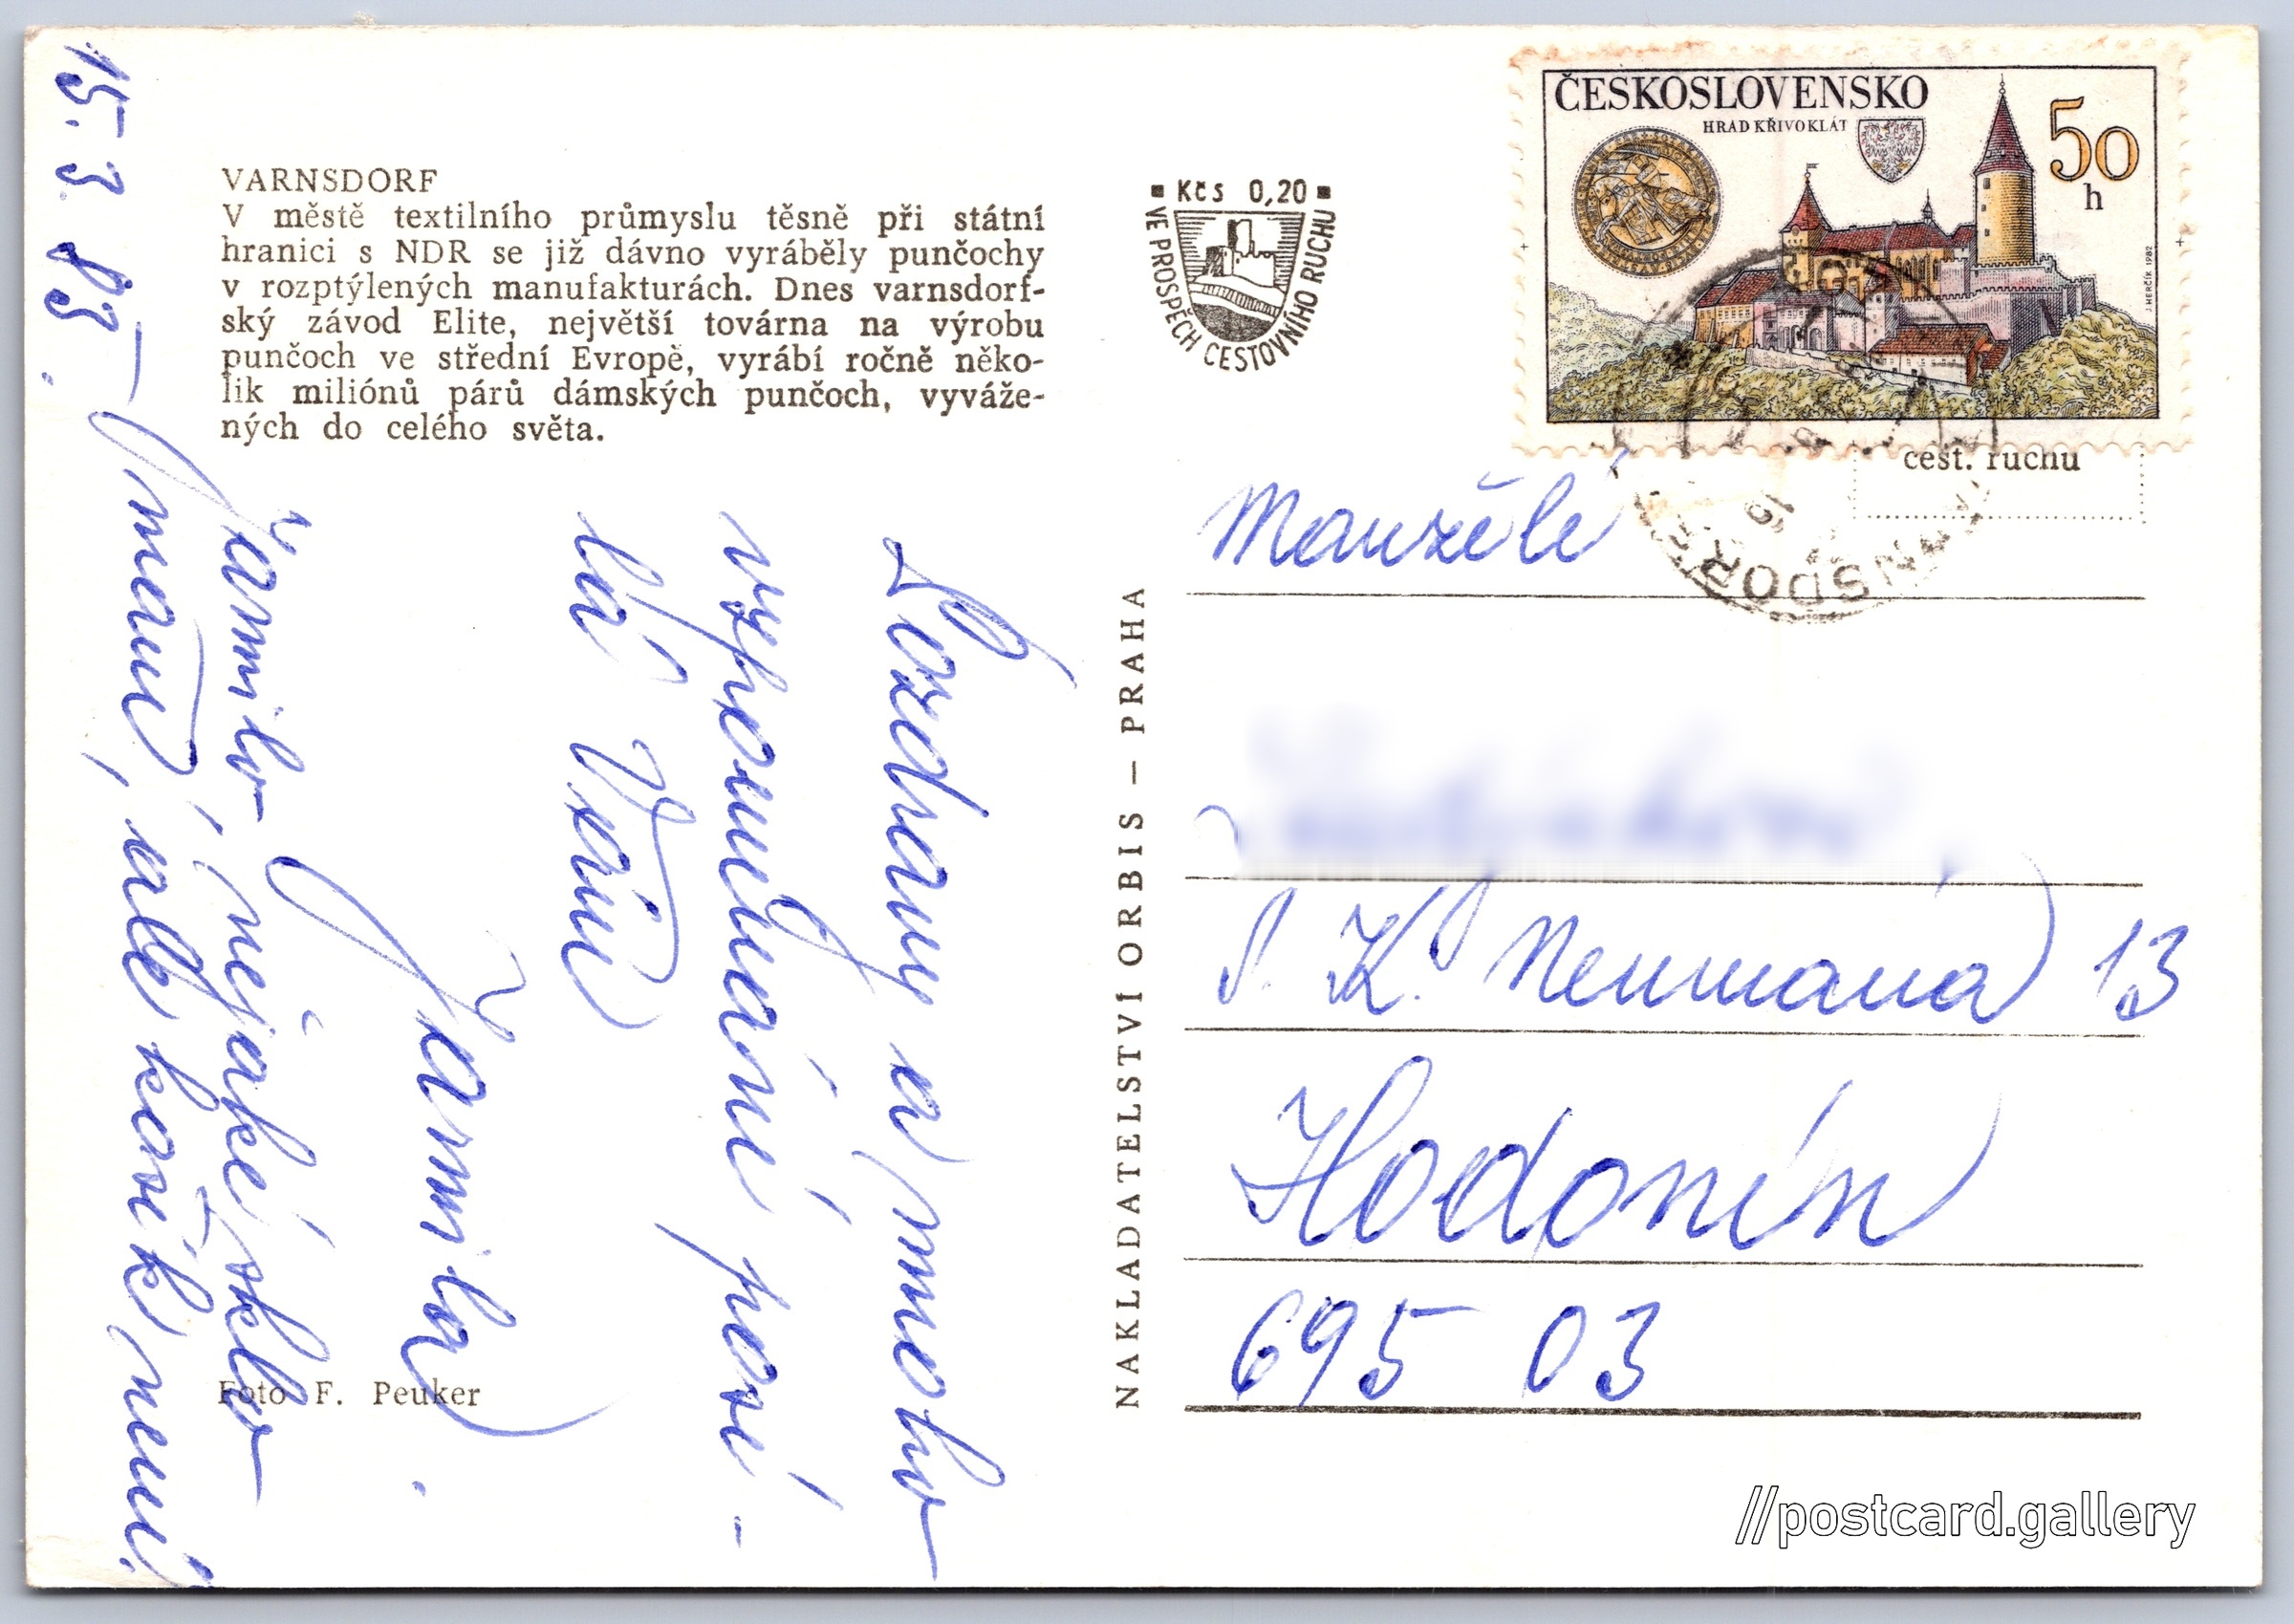 15. 3. 83.
VARNSDORF
V městě textilního průmyslu těsně při státní
hranici s NDR se již dávno vyráběly punčochy
v rozptýlených manufakturách. Dnes varnsdorf-
ský závod Elite, největší továrna na výrobu
punčoch ve střední Evropě, vyrábí ročně něko-
lik miliónů párů dámských punčoch, vyváže-
ných do celého světa.
Pozdravy a mnoho
vzpomínání posí-
lá Vám
Jarmila
Jarmilo, nějaké sklo
mám, ale košík není
Foto F. Peuker
NAKLADATELSTVÍ ORBIS — PRAHA
Kčs 0,20
VE PROSPĚCH CESTOVNÍHO RUCHU
ČESKOSLOVENSKO
HRAD KŘIVOKLÁT
50
h
J. HERČÍK 1982
cest. ruchu
15
VARNSDORF
Manželé
S. K. Neumana 13
Hodonín
695 03
//postcard.gallery